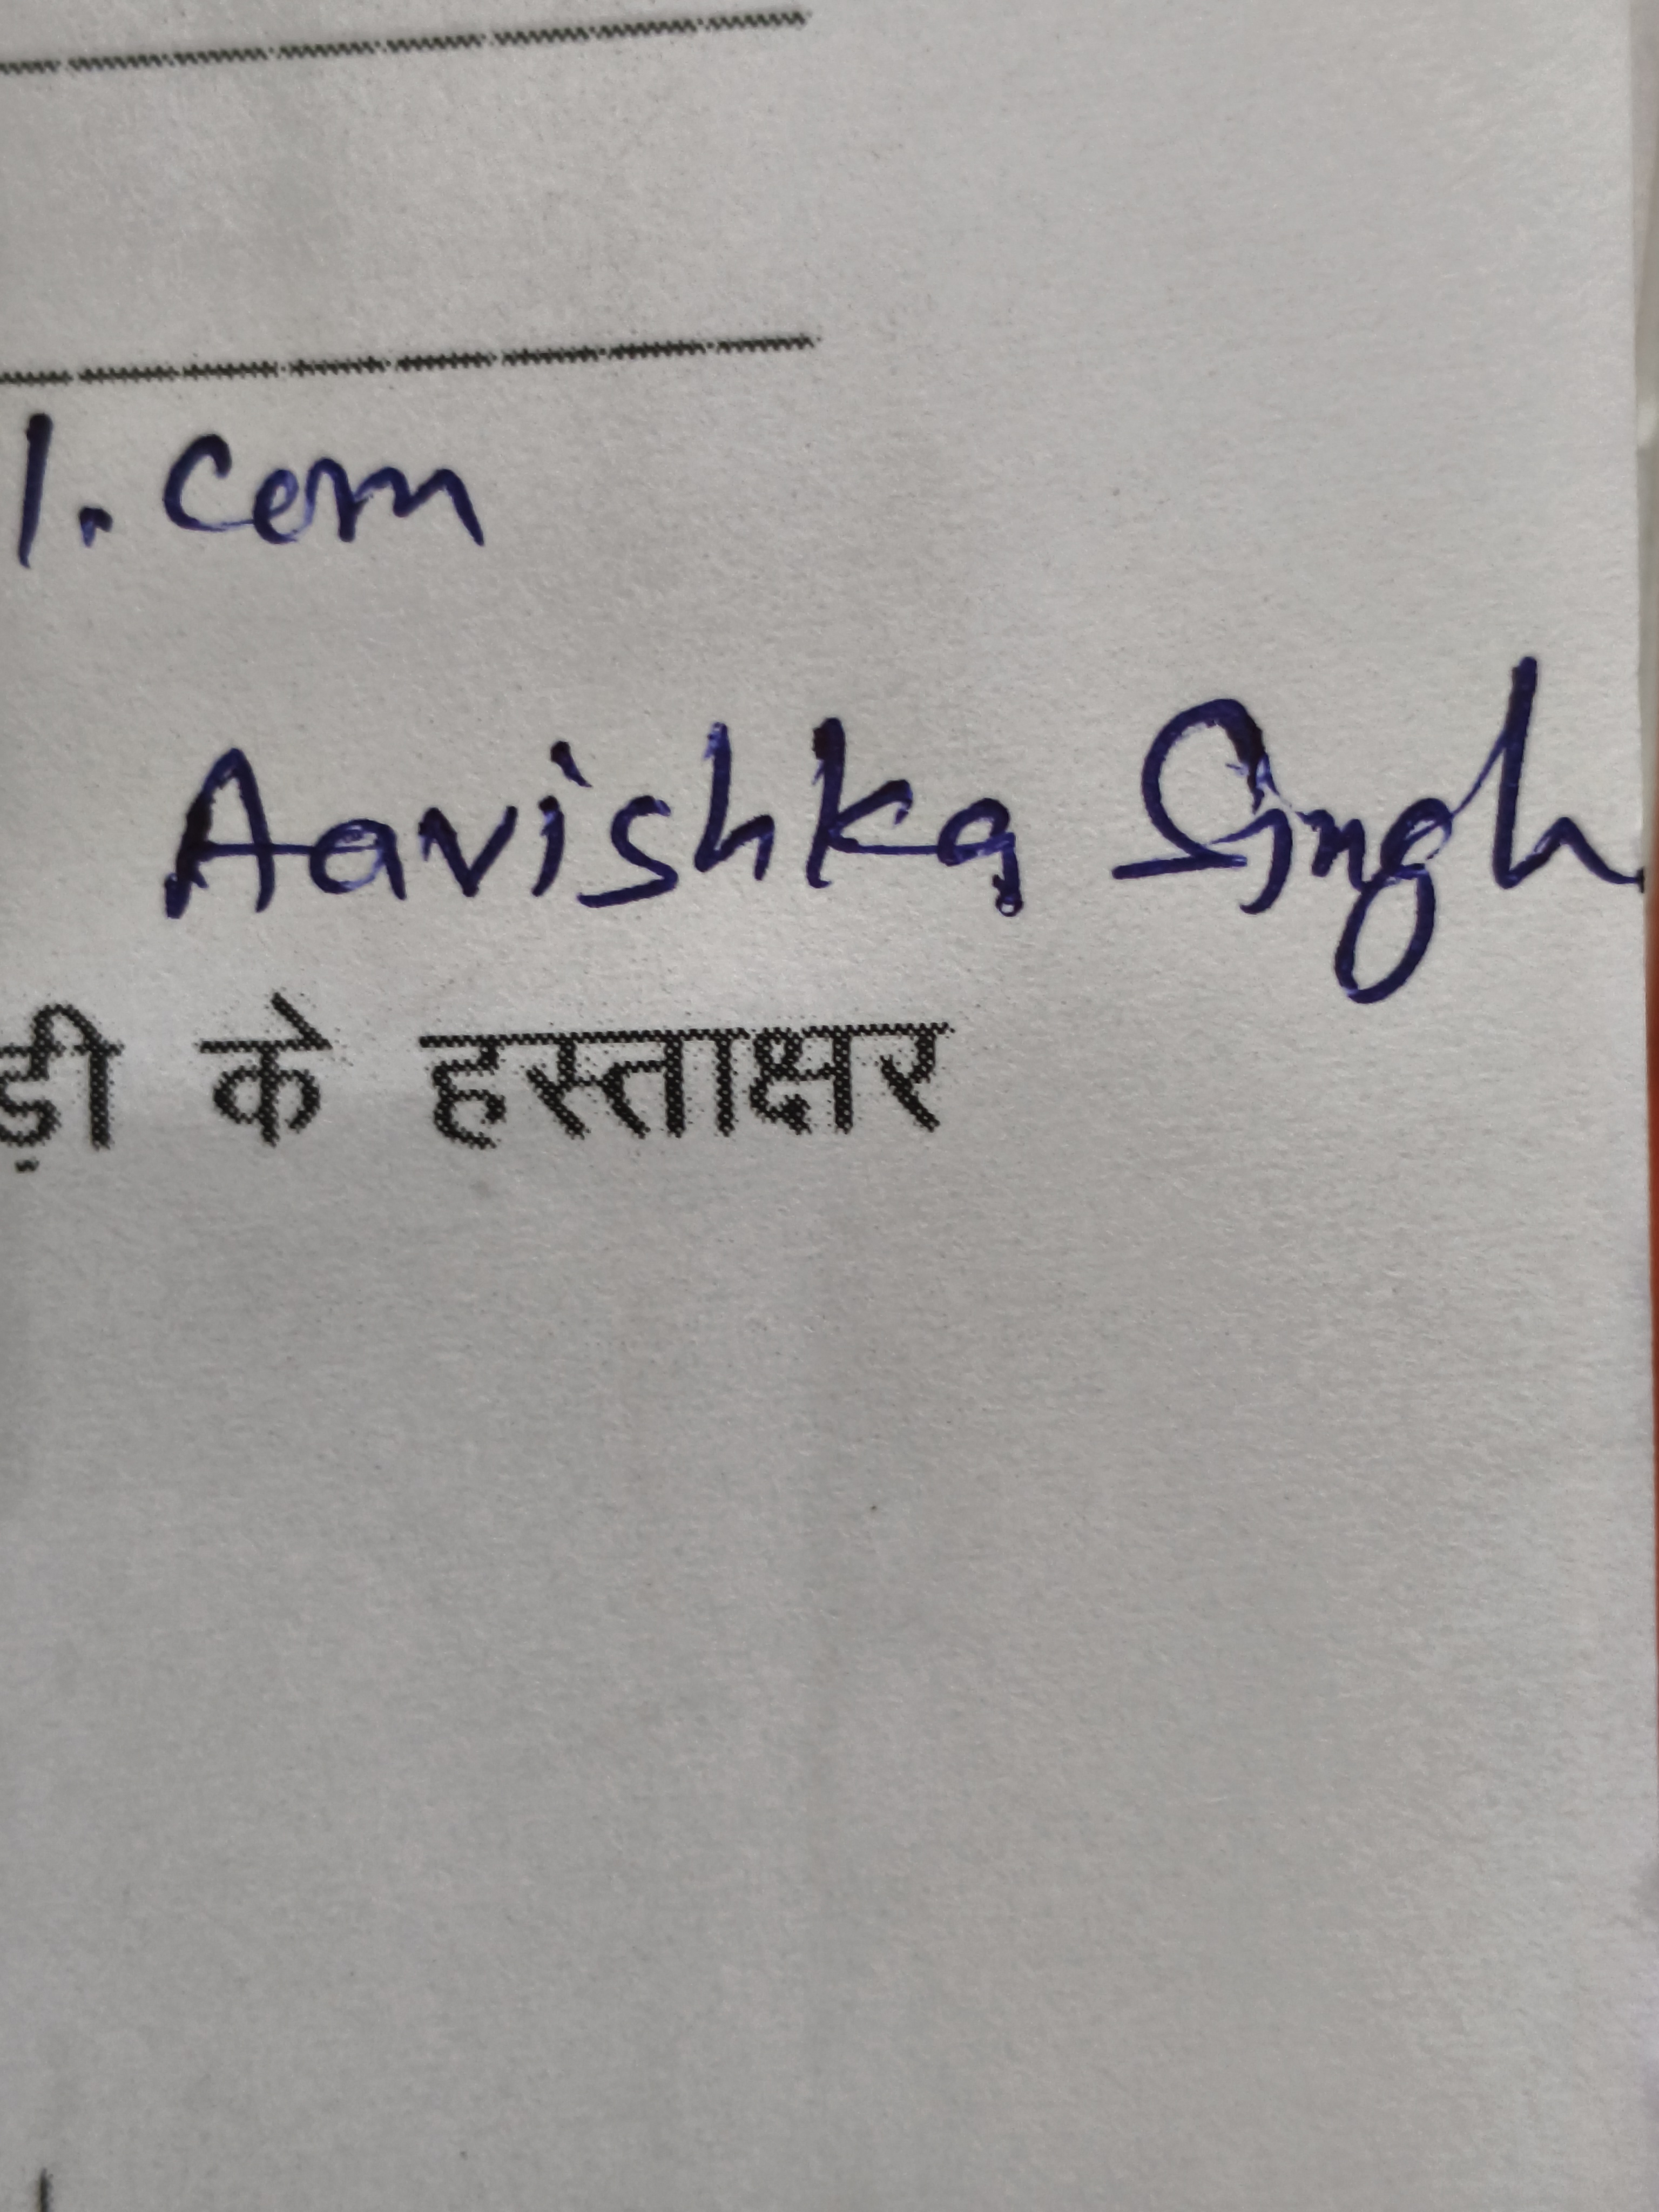 l.com
Aavishka Singh
ड़ी के हस्ताक्षर